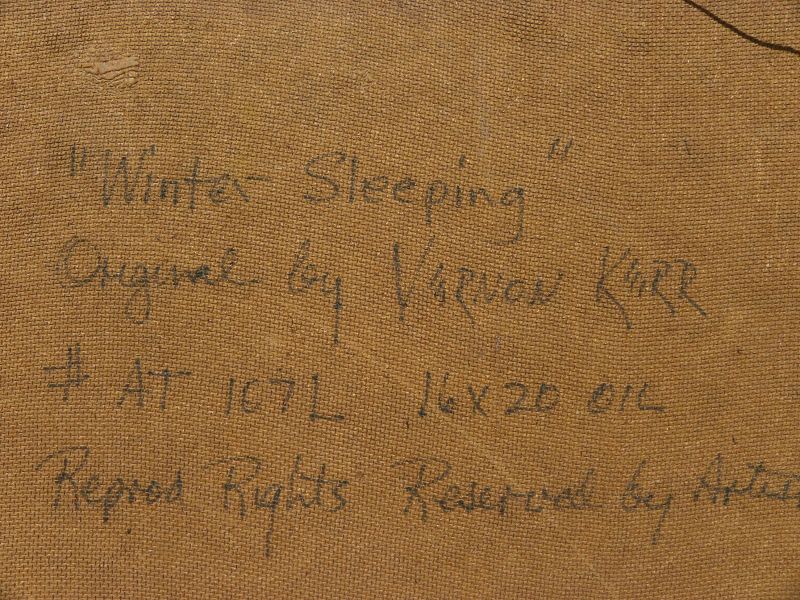 "Winter Sleeping"
Original by VERNON KERR
# AT 107L 16x20 OIL
Reprod Rights Reserved by Artist